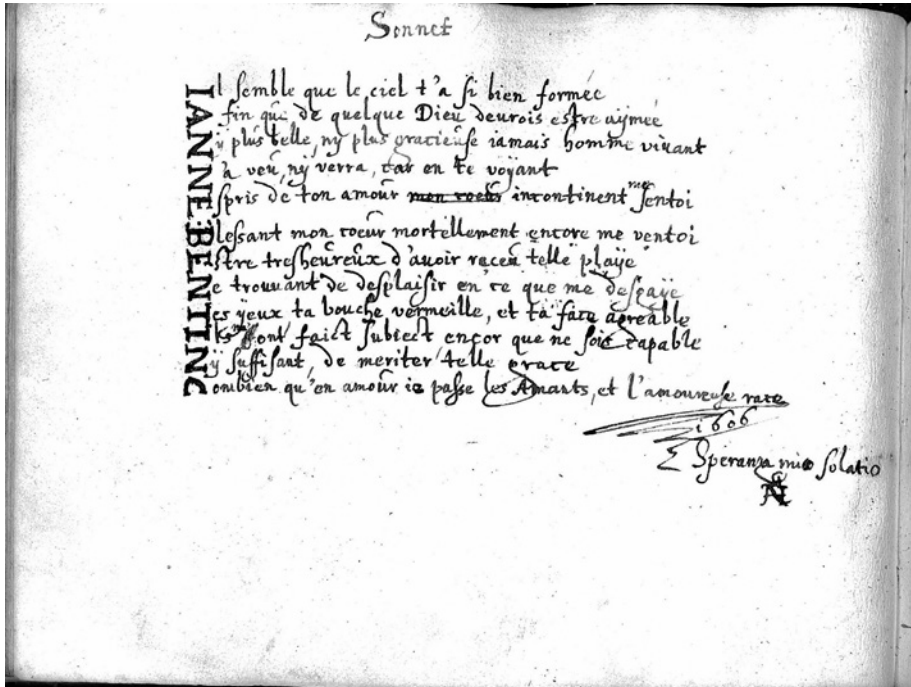 Sonnet
Il semble que le ciel t'a si bien formée
Afin que de quelque Dieu deurois estre aÿmée
Nÿ plus belle, nÿ plus gracieuse iamais homme viuant
N'a veu, nÿ verra, car en te voÿant
Espris de ton amour mon coeur incontinent me sentoi
Blessant mon coeur mortellement encore me ventoi
Estre tresheureux d'auoir receu telle plaÿe
Ne trouuant de desplaisir en ce que me despaÿe
Tes ÿeux ta bouche vermeille, et ta face agreable
Ils m'ont faict subiect encor que ne sois capable
Nÿ suffisant, de meriter telle grace
Combien qu'en amour ie passe les Amants, et l'amoureuse race
1606
Speranza mio solatio